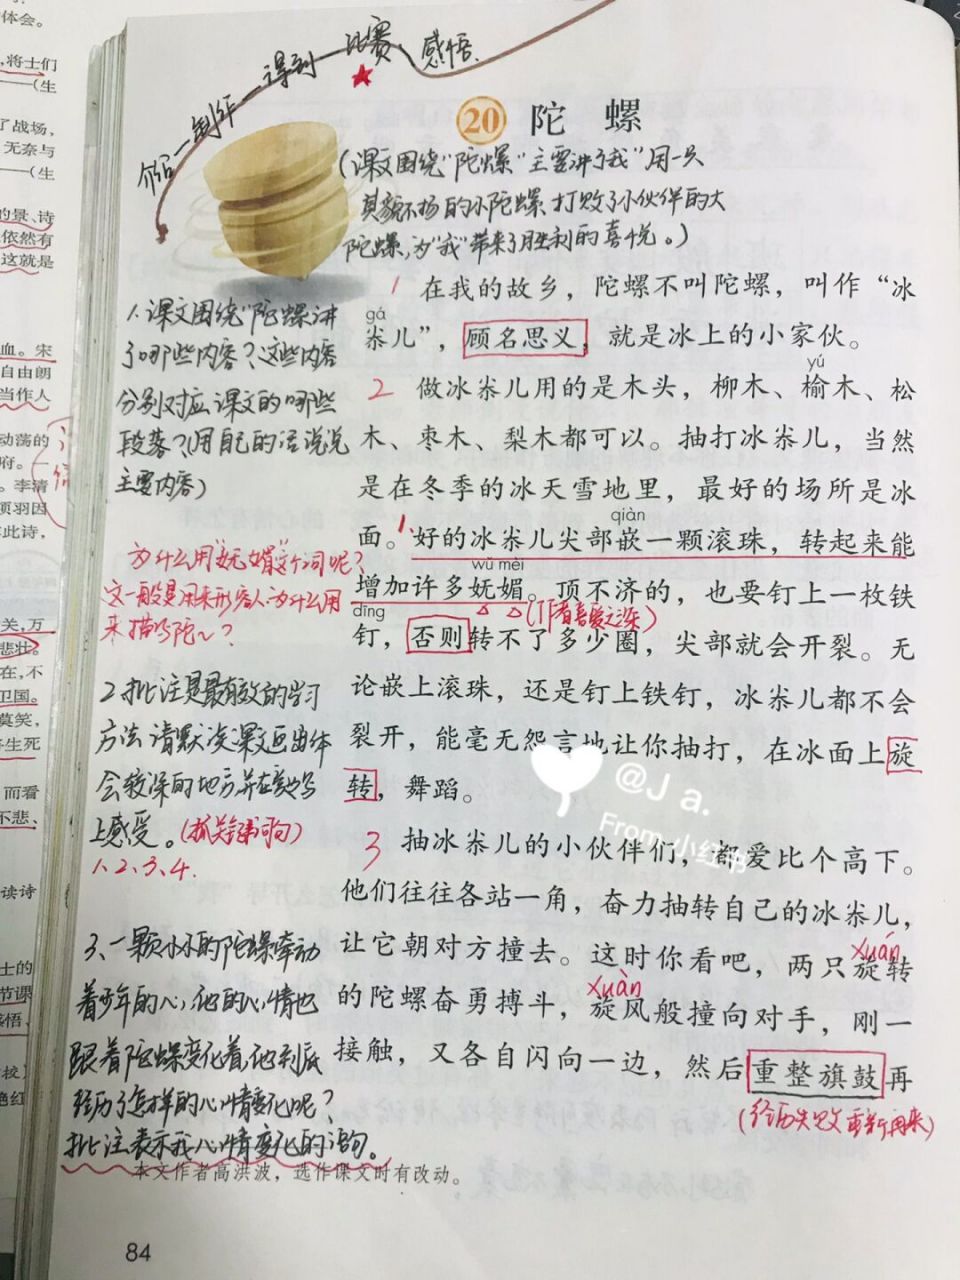 体会。
,将士们
——(生
了战场,
无奈与
——(生
的景、诗
依然有
这就是
血。宋
自由朗
当作人
动荡的
府。一
。李清
项羽因
此诗,
关,万
悲壮
在,不
卫国。
莫笑,
将生死
而看
不悲、
读诗
士的
节课
感悟、
校]
艳红
介绍—制作—得到—比赛、感悟.
★
20 陀螺
(课文围绕"陀螺"主要讲了"我"用一只
其貌不扬的小陀螺,打败了小伙伴的大
陀螺,为"我"带来了胜利的喜悦。)
1 在我的故乡,陀螺不叫陀螺,叫作“冰
gá
尜儿”,顾名思义,就是冰上的小家伙。
yú
2 做冰尜儿用的是木头,柳木、榆木、松
木、枣木、梨木都可以。抽打冰尜儿,当然
是在冬季的冰天雪地里,最好的场所是冰
qiàn
面。1好的冰尜儿尖部嵌一颗滚珠,转起来能
wǔ mèi
增加许多妩媚。顶不济的,也要钉上一枚铁
dīng
钉,否则转不了多少圈,尖部就会开裂。无
论嵌上滚珠,还是钉上铁钉,冰尜儿都不会
裂开,能毫无怨言地让你抽打,在冰面上旋
转,舞蹈。
3 抽冰尜儿的小伙伴们,都爱比个高下。
他们往往各站一角,奋力抽转自己的冰尜儿,
让它朝对方撞去。这时你看吧,两只旋转
xuán
的陀螺奋勇搏斗,旋风般撞向对手,刚一
xuàn
接触,又各自闪向一边,然后重整旗鼓再
(经历失败重新再来)
1.课文围绕"陀螺"讲
了哪些内容?这些内容
分别对应课文的哪些
段落?(用自己的话说说
主要内容)
为什么用"妩媚"这个词呢?
这一般是用来形容人,为什么用
来描写陀~?
喜爱之深)
2.批注是最有效的学习
方法,请默读课文画出体
会较深的地方,并在旁边写
上感受。(抓关键词句)
1、2、3、4.
3、一颗小小的陀螺牵动
着少年的心,他的心情也
跟着陀螺变化着,他到底
经历了怎样的心情变化呢?
批注表示我心情变化的语句。
本文作者高洪波,选作课文时有改动。
84
@J a.
From 小红书